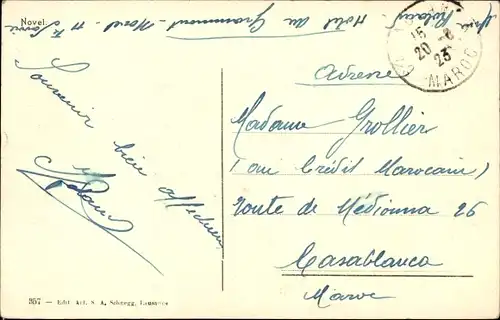 Novel.
Hôtel du Grammont - Novel - Hte Savoie
15
20-8
23
MAROC
Adresse
Souvenir
bien affectueux
Madame Grollier
(au Crédit Marocain)
Route de Médiouna 26
Casablanca
Maroc
357 - Edit Art. S. A. Schnegg, Lausanne